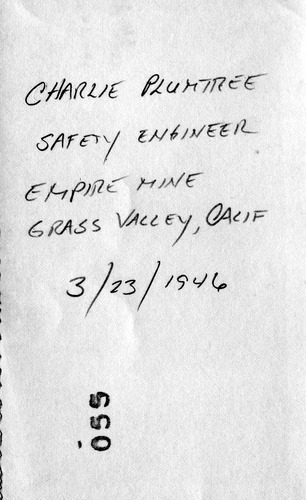 CHARLIE PLUMTREE
SAFETY ENGINEER
EMPIRE MINE
GRASS VALLEY, CALIF
3/23/1946
055